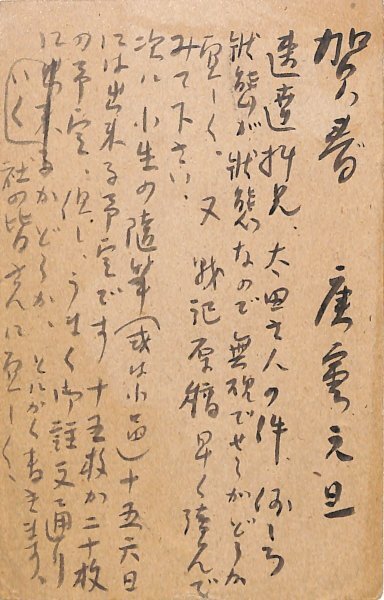 賀春 庚寅元旦
速達拝見、太田さんの件、何しろ
状態が状態なので無理でせうがどうか
宜しく、又戦記原稿早く読んで
みて下さい、
次に小生の随筆(或は小通)十五六日
には出来る予定です十五枚か二十枚
の予定、但し、うまく御註文通り
に出来るかどうか、とにかく書きます、
社の皆さんに宜しく、